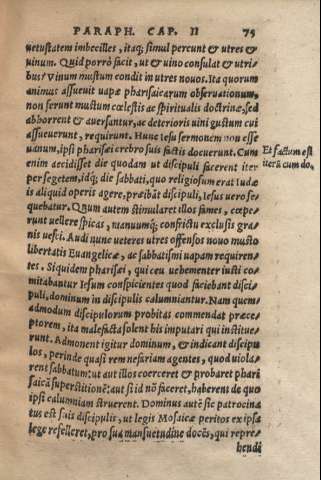 PARAPH. CAP. II 79
uetustatem imbecilles, itaq; simul pereunt & utres &
uinum. Quid porrò facit, ut & uino consulat & utri-
bus? Vinum mustum condit in utres nouos. Ita quorum
animus assueuit uapæ pharisaicarum obseruationum,
non ferunt mustum cœlestis ac spiritualis doctrinæ, sed
abhorrent & auersantur, ac deterioris uini gustum cui
assueuerunt, requirunt. Hunc Iesu sermonem non esse
uanum, ipsi pharisæi crebro suis factis docuerunt. Cum
Et factum est
enim accidisset die quodam ut discipuli facerent iter
iterũ cum do.
per segetem, idq; die sabbati, quo religiosum erat Iudæ
is aliquid operis agere, præibãt discipuli, Iesus uero se-
quebatur. Quum autem stimularet illos fames, cœpe-
runt uellere spicas, manuumq; confrictu exclusis gra-
nis uesci. Audi nunc ueteres utres offensos nouo musto
libertatis Euangelicæ, ac sabbatismi uapam requiren-
tes. Siquidem pharisæi, qui ceu uehementer iusti co-
mitabantur Iesum conspicientes quod faciebant disci-
puli, dominum in discipulis calumniantur. Nam quem
admodum discipulorum probitas commendat præce-
ptorem, ita malefacta solent his imputari qui institue-
runt. Admonent igitur dominum, & indicant discipu
los, perinde quasi rem nefariam agentes, quod uiola-
rent sabbatum: ut aut illos coerceret & probaret phari
saicã superstitionẽ: aut si id nõ faceret, haberent de quo
ipsi calumniam struerent. Dominus autẽ sic patrocina
tus est suis discipulis, ut legis Mosaicæ peritos ex ipsa
lege refelleret, pro sua mansuetudine docẽs, qui repre-
hendi